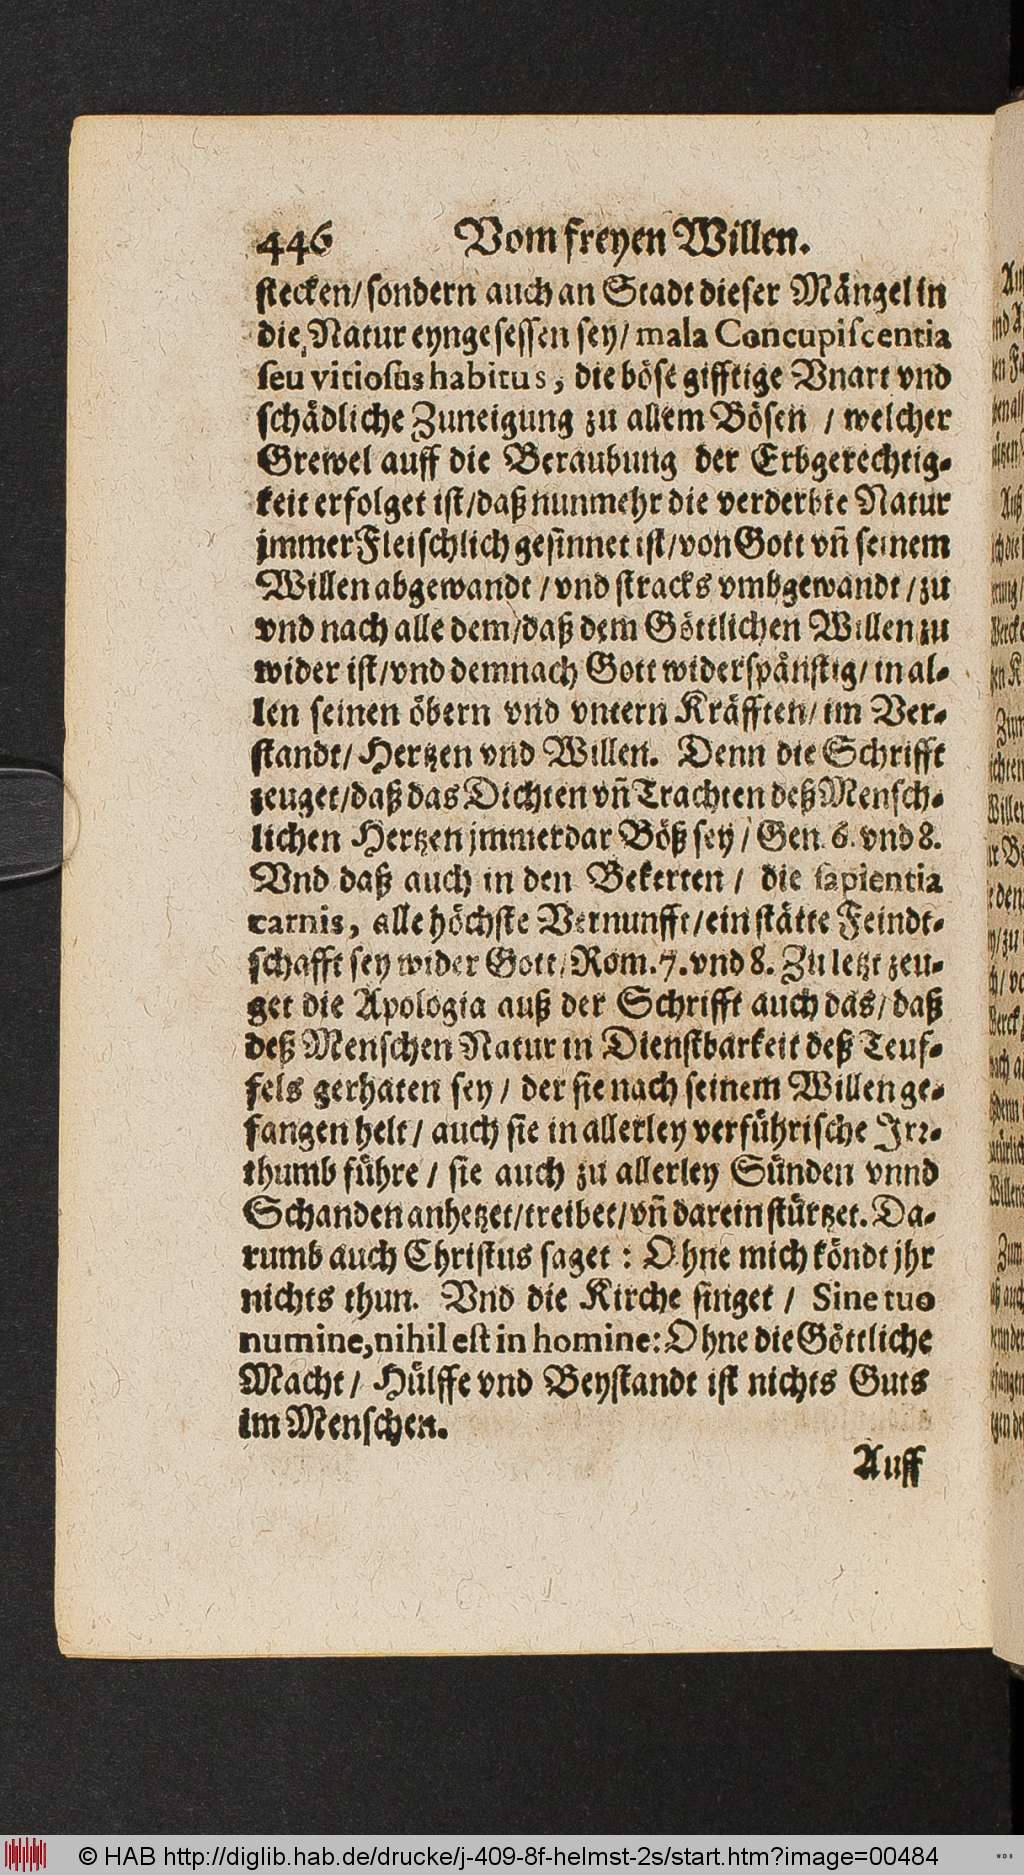 446 Vom freyen Willen.
stecken/ sondern auch an Stadt dieser Mängel in
die Natur eyngesessen sey/ mala Concupiscentia
seu vitiosus habitus, die böse gifftige Vnart vnd
schädliche Zuneigung zu allem Bösen / welcher
Grewel auff die Beraubung der Erbgerechtig-
keit erfolget ist/ daß nunmehr die verderbte Natur
jmmer Fleischlich gesinnet ist/ von Gott vñ seinem
Willen abgewandt / vnd stracks vmbgewandt / zu
vnd nach alle dem/ daß dem Göttlichen Willen zu
wider ist/ vnd demnach Gott widerspänstig/ in al-
len seinen öbern vnd vntern Kräfften/ im Ver-
standt/ Hertzen vnd Willen. Denn die Schrifft
zeuget/ daß das Dichten vñ Trachten deß Mensch-
lichen Hertzen jmmerdar Böß sey / Gen. 6. vnd 8.
Vnd daß auch in den Bekerten / die sapientia
carnis, alle höchste Vernunfft/ ein stätte Feindt-
schafft sey wider Gott/ Rom. 7. vnd 8. Zu letzt zeu-
get die Apologia auß der Schrifft auch das/ daß
deß Menschen Natur in Dienstbarkeit deß Teuf-
fels gerhaten sey / der sie nach seinem Willen ge-
fangen helt / auch sie in allerley verführische Irr-
thumb führe / sie auch zu allerley Sünden vnnd
Schanden anhetzet/ treibet/ vñ darein stürtzet. Da-
rumb auch Christus saget : Ohne mich köndt jhr
nichts thun. Vnd die Kirche singet / Sine tuo
numine, nihil est in homine: Ohne die Göttliche
Macht / Hülffe vnd Beystandt ist nichts Guts
im Menschen.
Auff
© HAB http://diglib.hab.de/drucke/j-409-8f-helmst-2s/start.htm?image=00484